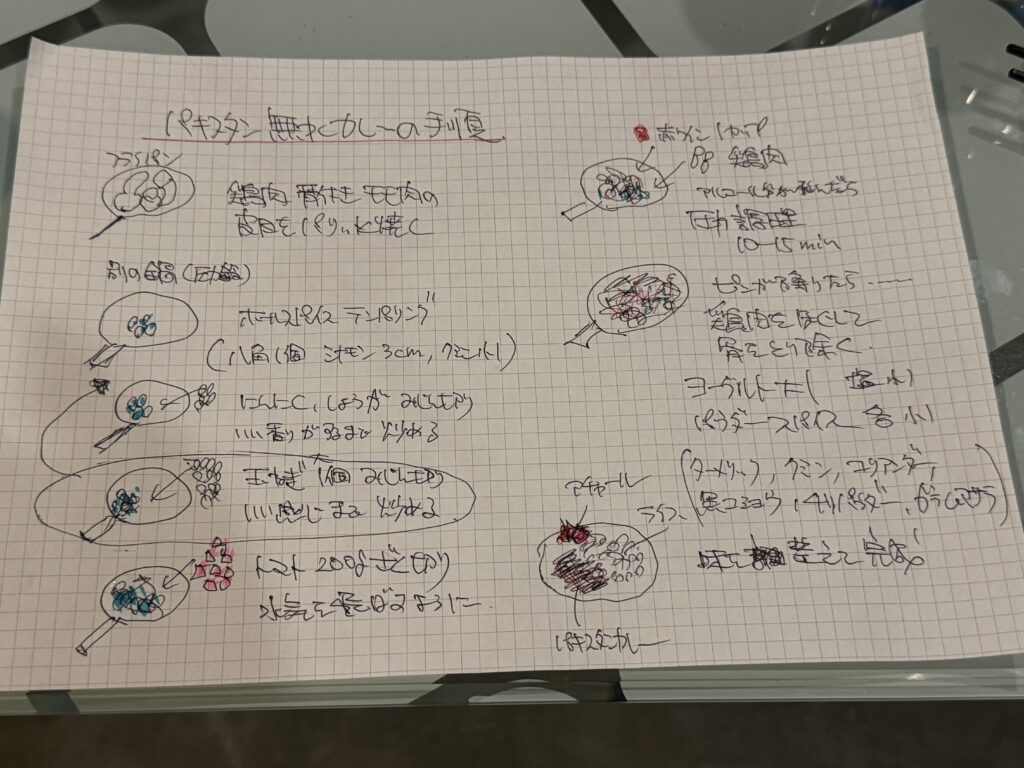 パキスタン 無水カレーの手順
フライパン
鶏肉 骨付き モモ肉の
皮目をパリッと焼く
別の鍋(圧力鍋)
ホールスパイス テンパリング
(八角1個 シナモン3cm, クミン小1)
にんにく、しょうが みじん切り
いい香りがするまで 炒める
玉ねぎ 1個 みじん切り
いい感じまで 炒める
トマト 200g ざく切り
水気を飛ばすように
赤ワイン 1カップ
鶏肉
アルコール分が飛んだら
圧力調理
10-15min
ピンが下りたら……
鶏肉をほぐして
骨をとり除く.
ヨーグルト大1 塩小1
パウダースパイス 各小1
(ターメリック, クミン, コリアンダー,
黒コショウ, チリパウダー, ガラムマサラ)
味を整えて完成!
アチャール
ライス
パキスタンカレー